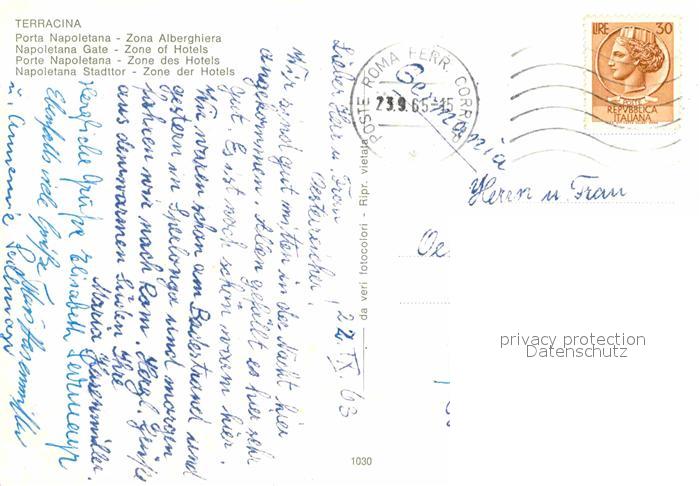 TERRACINA
Porta Napoletana - Zona Alberghiera
Napoletana Gate - Zone of Hotels
Porte Napoletana - Zone des Hotels
Napoletana Stadttor - Zone der Hotels
LIRE 30
POSTE
REPVBBLICA
ITALIANA
POSTE ROMA FERR. CORR
23.9.65-15
Germania
Herrn u. Frau
Oe
privacy protection
Datenschutz
da veri fotocolori - Ripr. vietata
1030
22. IX. 63
Lieber Herr u. Frau
Oesterreicher!
Wir sind gut mitten in der Nacht hier
angekommen. Allen gefällt es hier sehr
gut. Es ist noch schön warm hier.
Wir waren schon am Badestrand und
gestern in Sperlonga und morgen
fahren wir nach Rom. Herzl. Grüße
aus dem warmen Süden Ihre
Maria
Herzliche Grüße Elisabeth
Ebenfalls viele Grüße
u. Annemie